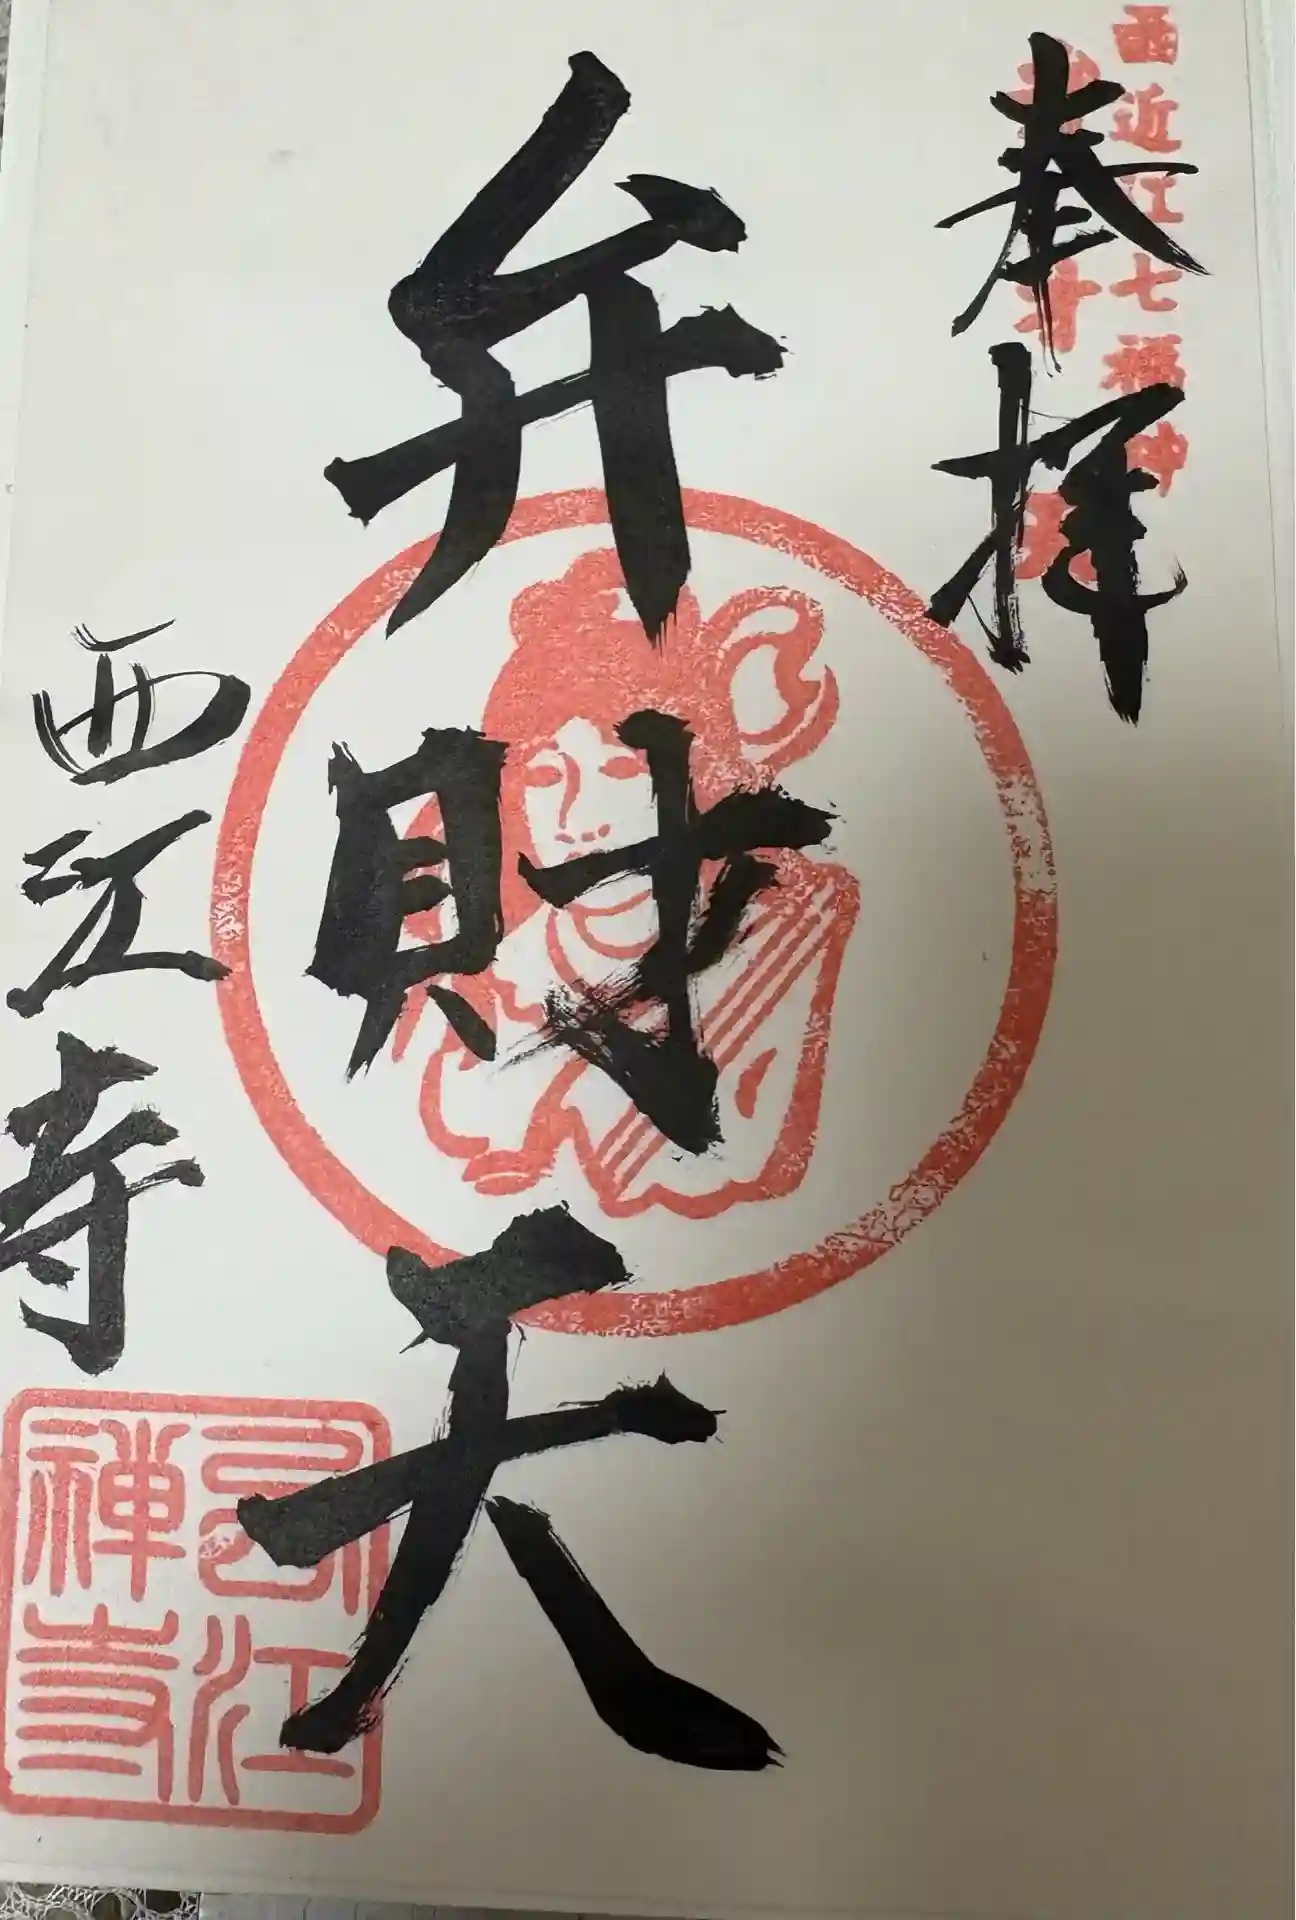 西近江七福神
奉拝
弁財天
西江寺
西江
禅寺